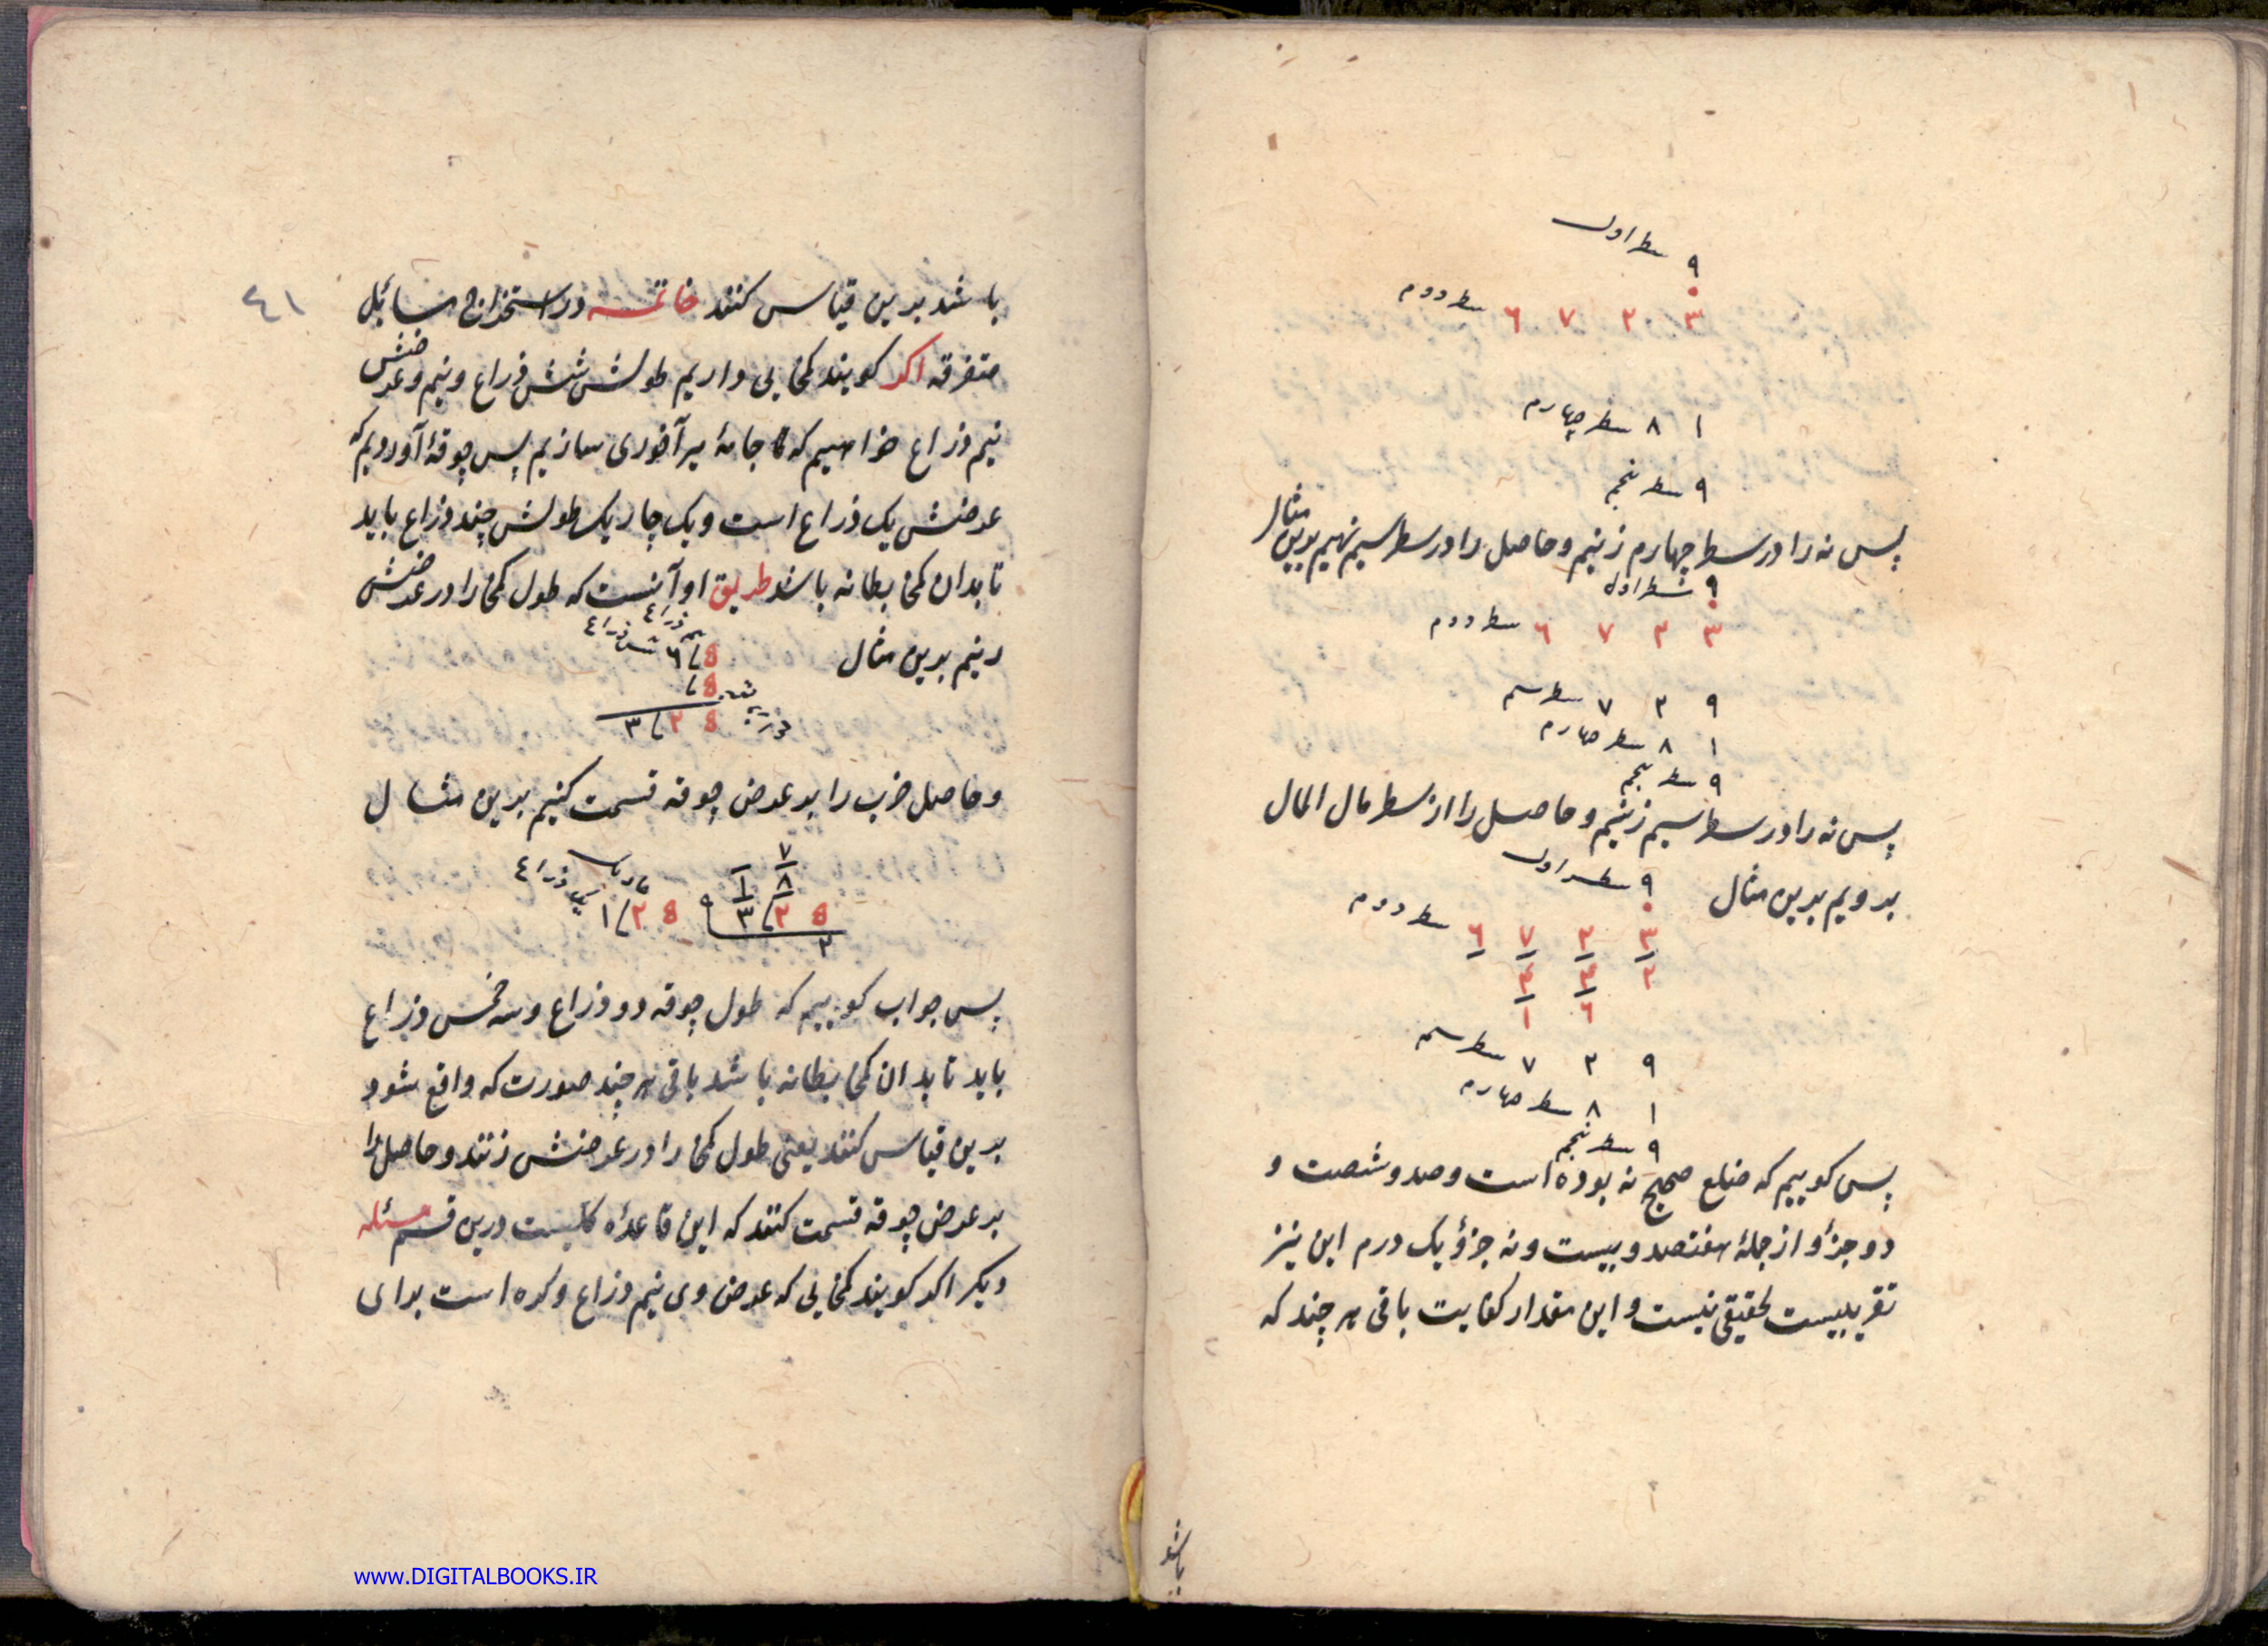 ۹ سطر اول
۳ ۲ ۷ ۶ سطر دوم
۱ ۸ سطر چهارم
۹ سطر پنجم
پس نه را در سطر چهارم زنیم و حاصل را در سطر سیم نهیم بدین مثال
۹ سطر اول
۳ ۲ ۷ ۶ سطر دوم
۹ ۲ ۷ سطر سیم
۱ ۸ سطر چهارم
۹ سطر پنجم
پس نه را در سطر سیم زنیم و حاصل را از سطر مال المال
برویم بدین مثال
۹ سطر اول
۳ ۲ ۷ ۶ سطر دوم
۲ ۴ ۴
۶ ۱
۹ ۲ ۷ سطر سیم
۱ ۸ سطر چهارم
۹ سطر پنجم
پس کوییم که ضلع صحیح نه بوده است و صد و شصت و
دو جزؤ از جملهٔ هفتصد و بیست و نه جزؤ یک درم این نیز
تقریبیست تحقیقی نیست و این مقدار کفایت باقی هر چند که
باشد
٤١
باشد بدین قیاس کنند خاتمه در استخراج مسائل
متفرقه اکر کویند کمخابی داریم طولش شش ذراع و نیم و عرضش
نیم ذراع خواهیم که تا جامهٔ میرآخوری سازیم پس چوقهٔ آوردیم که
عرضش یک ذراع است و یک چاریک طولش چند ذراع باید
تا بدان کمخا بطانه باشد طریق او آنست که طول کمخا را در عرضش
زنیم بدین مثال
۶ / 8 شش ذراع نیم ذراع
/ 8
۳ / ۲ 8
و حاصل ضرب را بر عرض چوقه قسمت کنیم بدین مثال
۷
۱ ۸
۱ / ۲ 8 ۹ ۳ / ۲ 8 یک ذراع
۲
پس جواب کوییم که طول چوقه دو ذراع و سه خمس ذراع
باید تا بدان کمخا بطانه باشد باقی هر چند صورت که واقع شود
بدین قیاس کنند یعنی طول کمخا را در عرضش زنند و حاصل را
بر عرض چوقه قسمت کنند که این قاعدهٔ کلیست درین قسم مسئله
دیکر اکر کویند کمخابی که عرض وی نیم ذراع و کره است برای
www.DIGITALBOOKS.IR